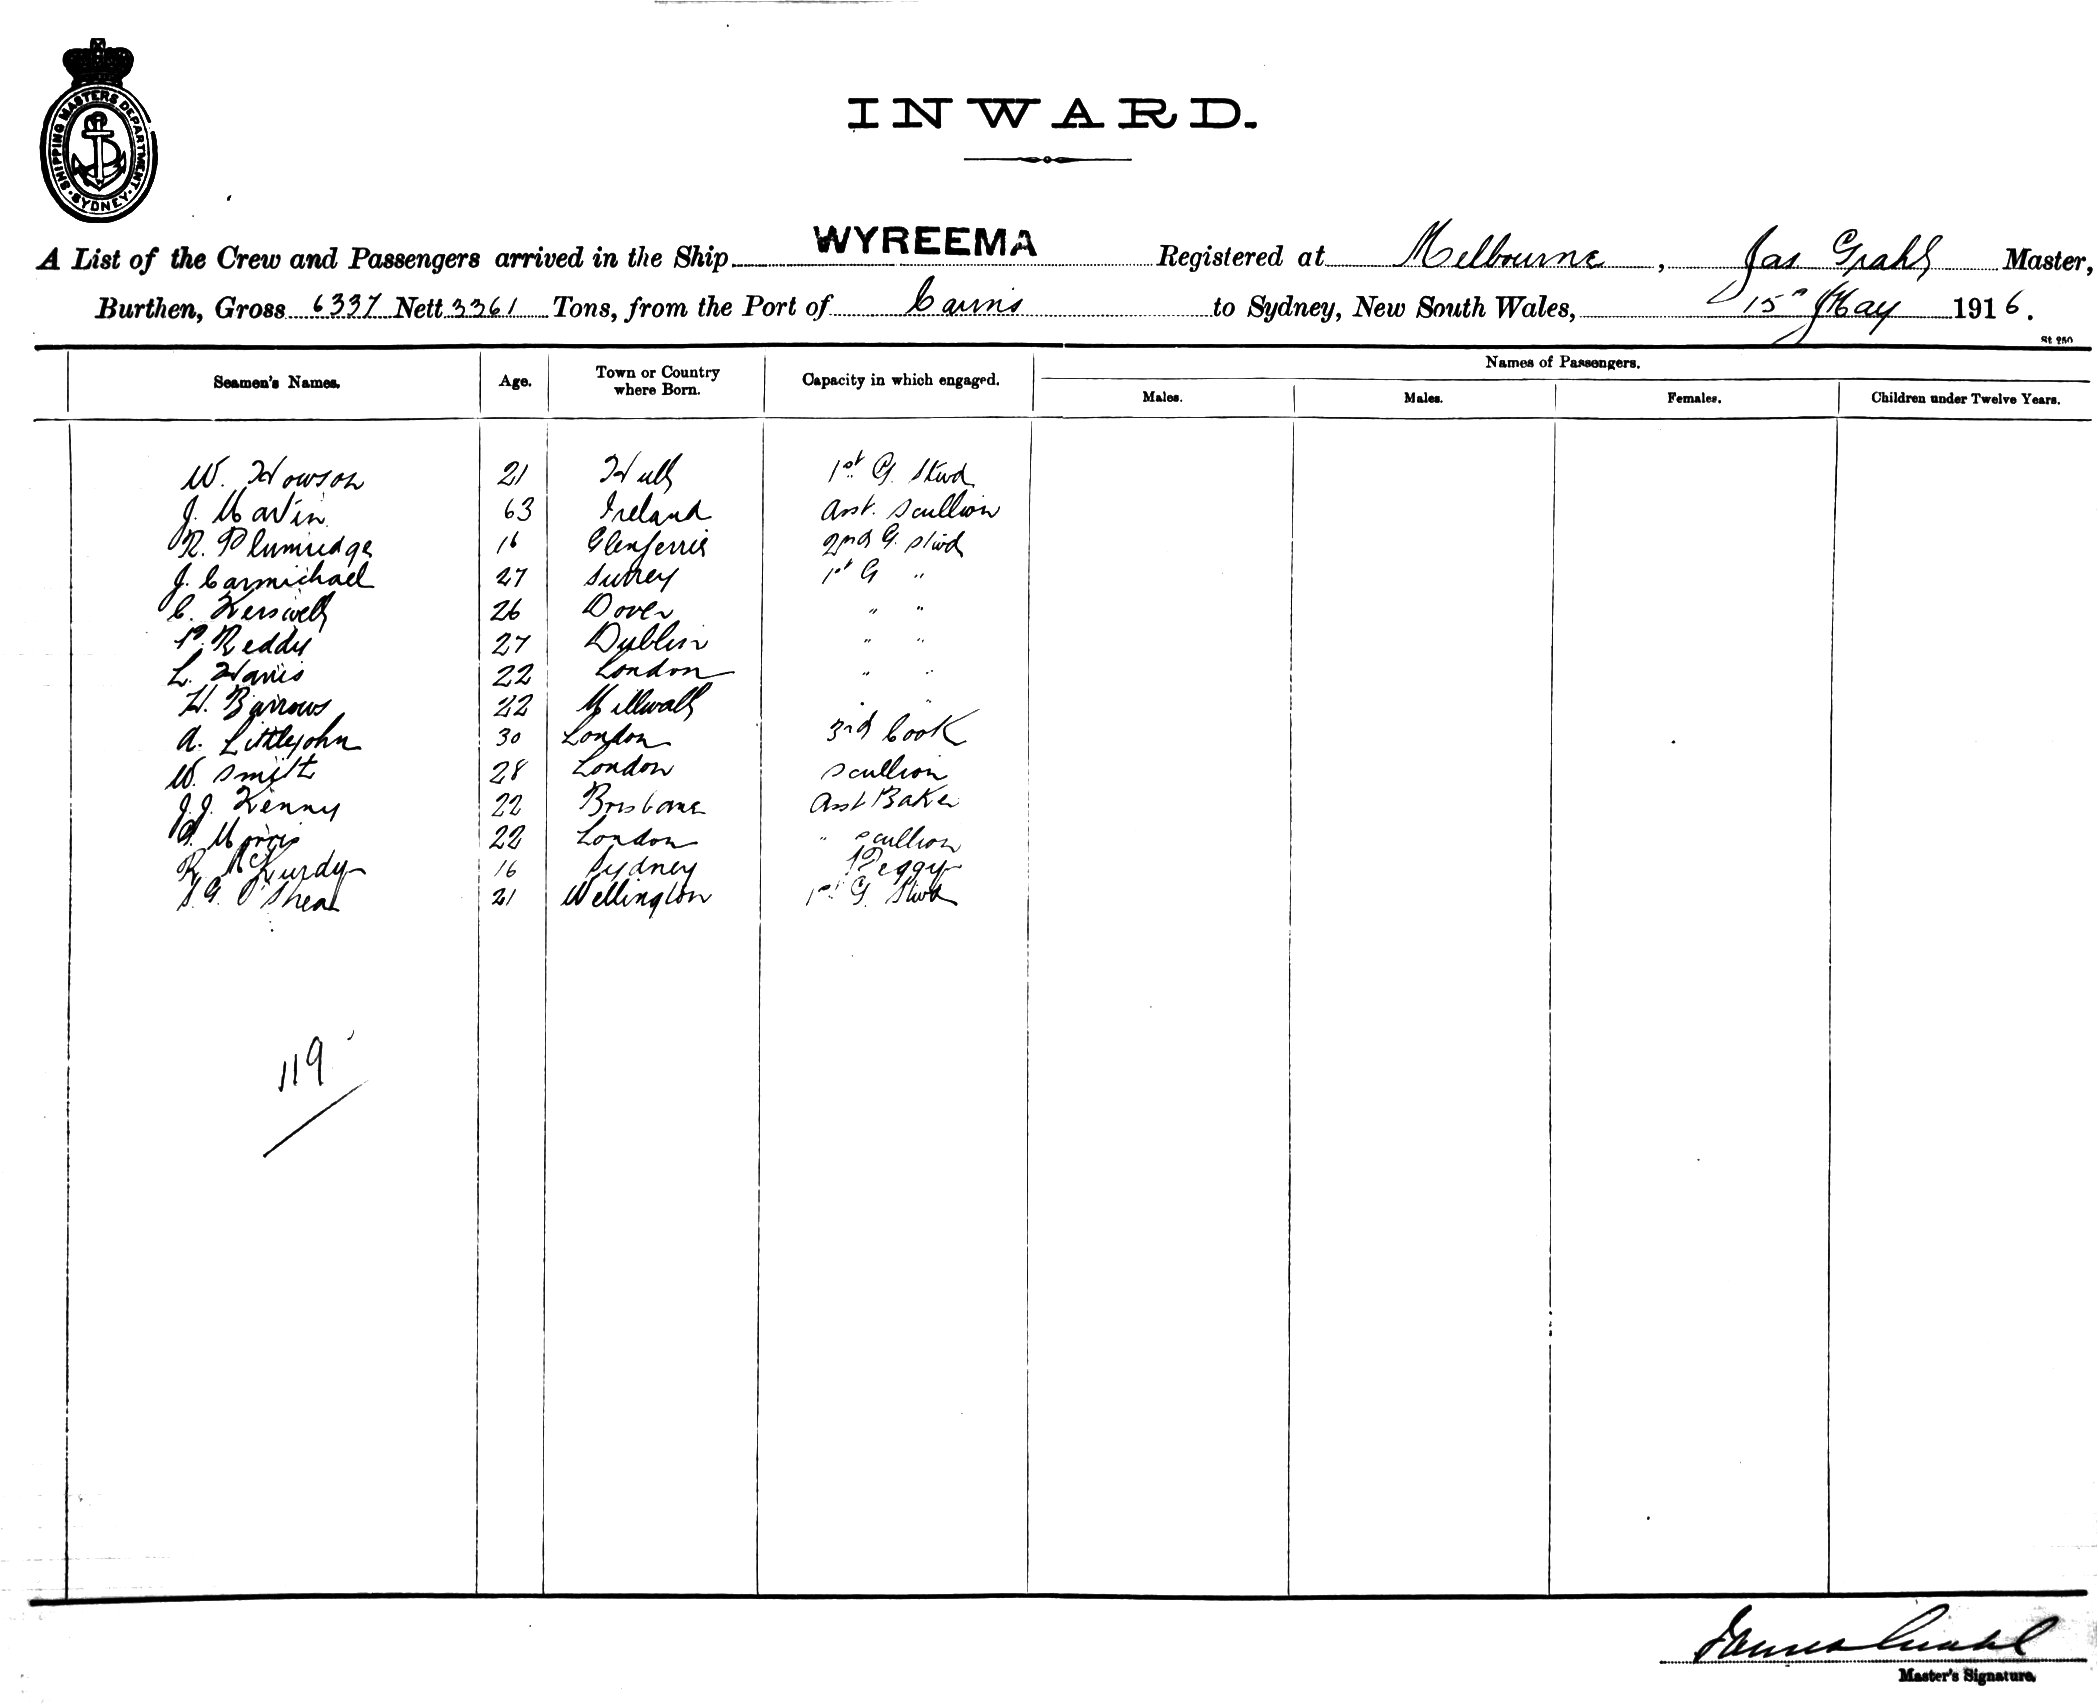 SHIPPING MASTERS DEPARTMENT
SYDNEY
INWARD.
A List of the Crew and Passengers arrived in the Ship WYREEMA Registered at Melbourne, Jas Grahl Master,
Burthen, Gross 6337 Nett 3361 Tons, from the Port of Cairns to Sydney, New South Wales, 15th May 1916.
St 250
Seamen's Names. Age. Town or Country where Born. Capacity in which engaged. Names of Passengers.
Males. Males. Females. Children under Twelve Years.
W. Howson 21 Hull 1st G. Stwd
J. Martin 63 Ireland Asst. Scullion
R. Plumridge 16 Glenferrie 2nd G. Stwd
J. Carmichael 27 Surrey 1st G "
C. Kerswell 26 Dover " "
P. Reddy 27 Dublin " "
L. Harris 22 London " "
H. Barrows 22 Millwall " "
A. Littlejohn 30 London 3rd Cook
W. Smith 28 London Scullion
J.J. Kenny 22 Brisbane Asst Baker
Morris 22 London " Scullion
R. McCurdy 16 Sydney Peggy
G. O'Shea 21 Wellington 1st G. Stwd
119
James Grahl
Master's Signature.